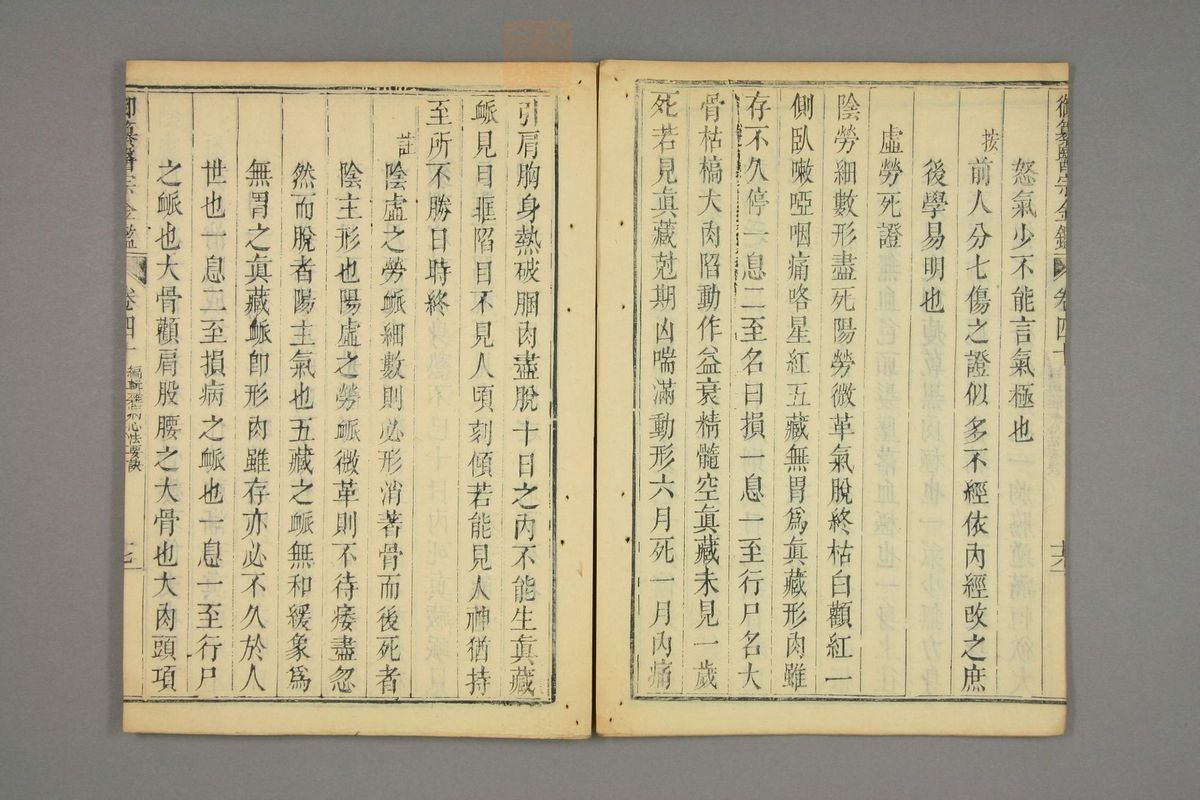 御纂醫宗金鑑 卷四十 六
怒氣少不能言氣極也
按前人分七傷之證似多不經依內經改之庶
後學易明也
虛勞死證
陰勞細數形盡死陽勞微革氣脫終枯白顴紅一
側臥嗽啞咽痛咯星紅五藏無胃爲眞藏形肉雖
存不久停一息二至名曰損一息一至行尸名大
骨枯槁大肉陷動作益衰精髓空眞藏未見一歲
死若見眞藏尅期凶喘滿動形六月死一月內痛
引肩胸身熱破䐃肉盡脫十日之內不能生眞藏
䘑見目眶陷目不見人頃刻傾若能見人神猶持
至所不勝日時終
註陰虛之勞䘑細數則必形消著骨而後死者
陰主形也陽虛之勞䘑微革則不待痿盡忽
然而脫者陽主氣也五藏之䘑無和緩象爲
無胃之眞藏䘑卽形肉雖存亦必不久於人
世也一息二至損病之䘑也一息一至行尸
之䘑也大骨顴肩股腰之大骨也大肉頭項
御纂醫宗金鑑 卷四十 編輯雜病心法要訣 七